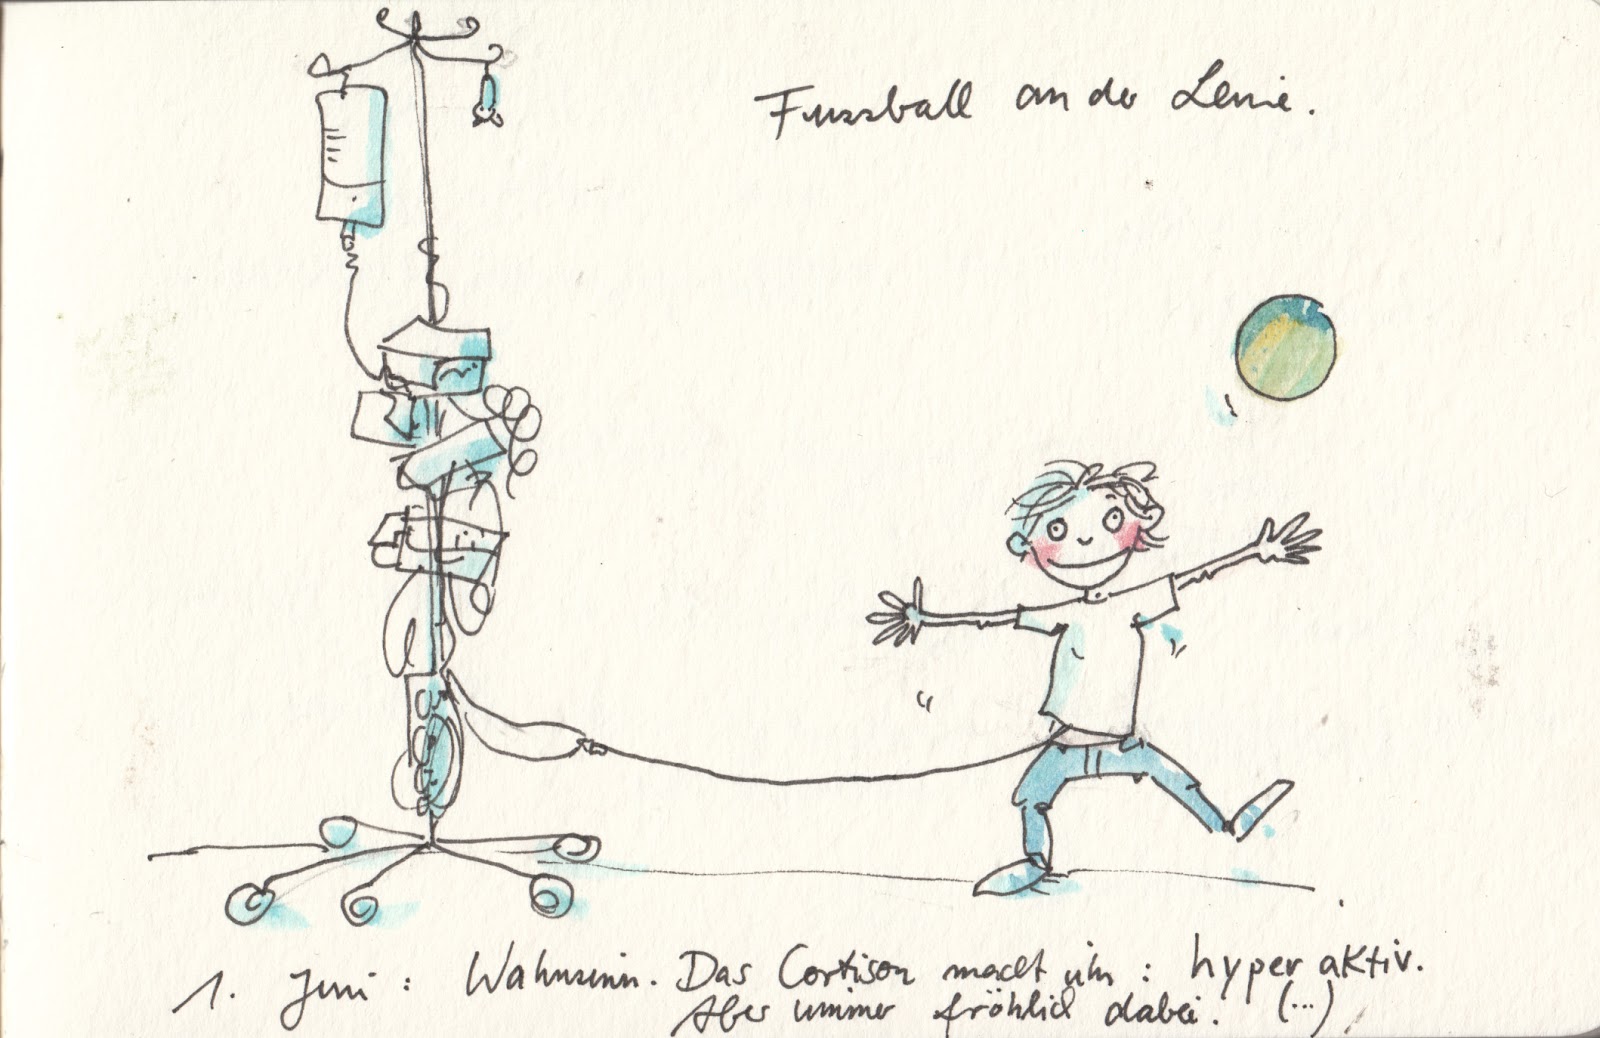 Fussball an der Leine.
1. Juni: Wahnsinn. Das Cortison macht ihn: hyperaktiv.
Aber immer fröhlich dabei. (...)